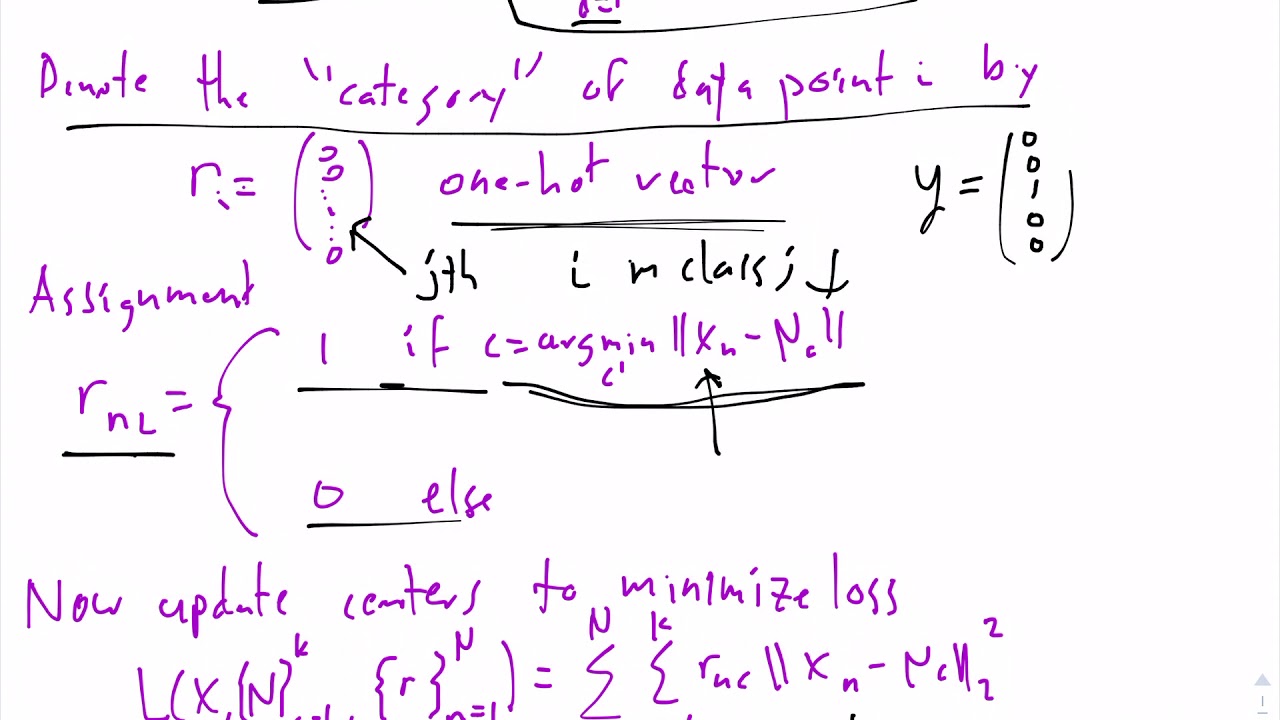 Denote the "category" of data point i by
r_i = ( 0 0 ⋮ 0 ) one-hot vector y = ( 0 0 1 0 0 )
jth i in class j ↓
Assignment
1 if c = argmin_{c'} ||x_n - μ_c||
r_{nc} = {
0 else
Now update centers to minimize loss
L(X, {μ}^k, {r}_{n=1}^N) = Σ^N Σ^k r_{nc} ||x_n - μ_c||_2^2